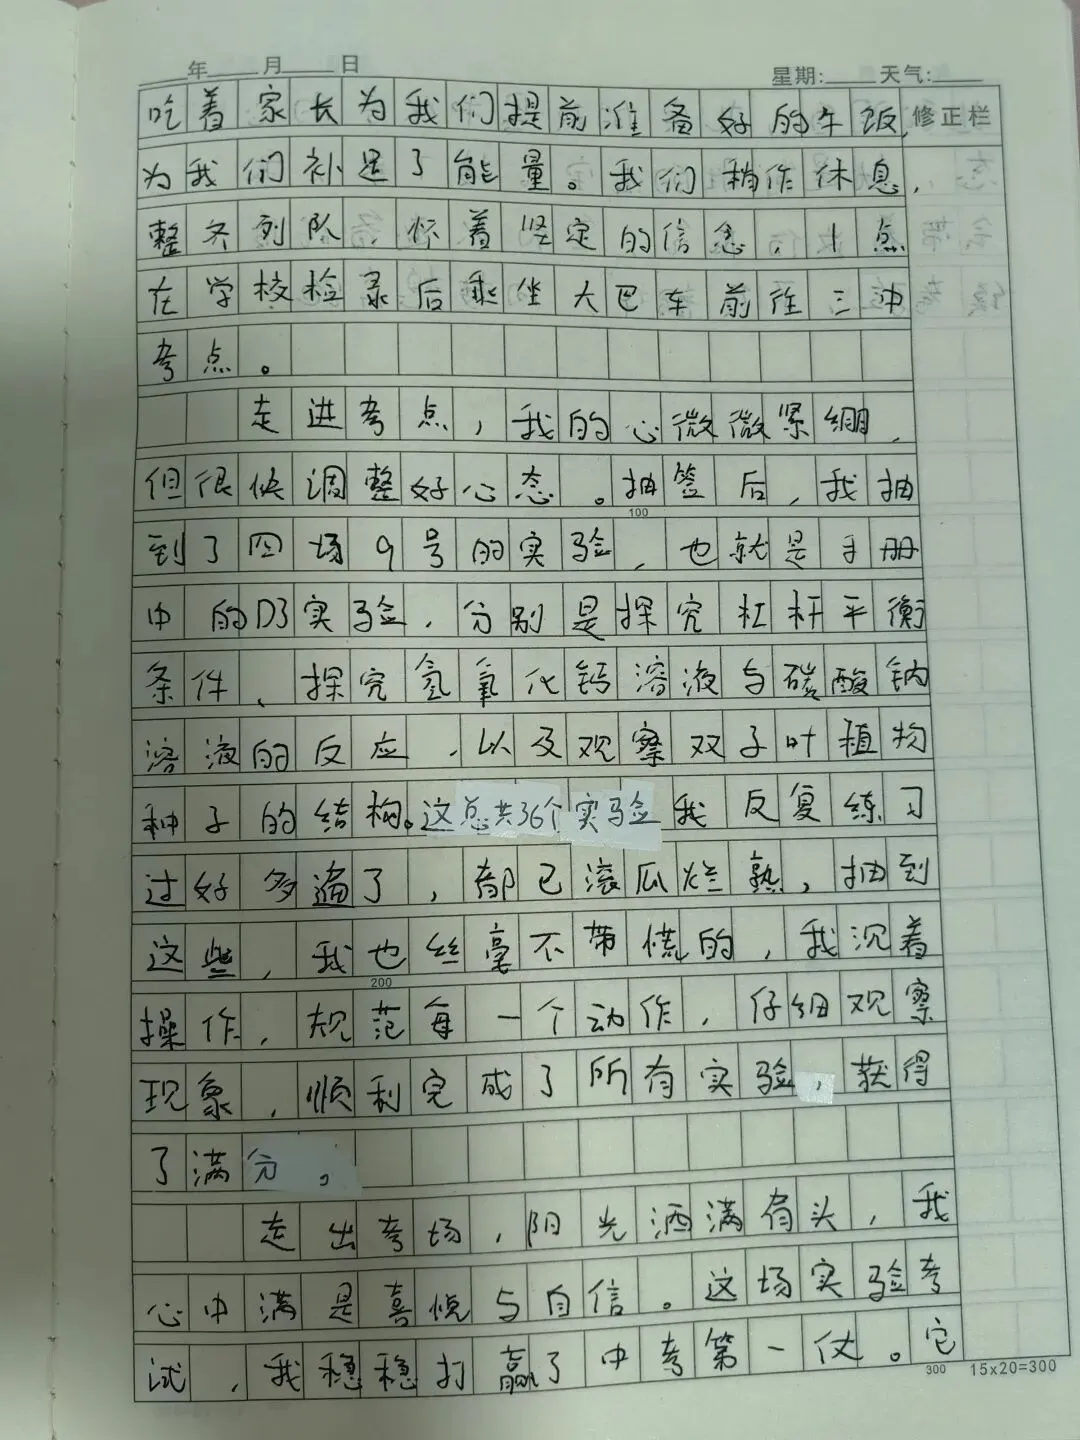 年 月 日
星期: 天气:
吃着家长为我们提前准备好的午饭,
修正栏
为我们补足了能量。我们稍作休息,
整齐列队,怀着坚定的信念,十点
在学校检录后乘坐大巴车前往三冲
考点。
走进考点,我的心微微紧绷,
但很快调整好心态。抽签后,我抽
100
到了四场9号的实验,也就是手册
中的D3实验,分别是探究杠杆平衡
条件、探究氢氧化钙溶液与碳酸钠
溶液的反应,以及观察双子叶植物
种子的结构。这总共36个实验我反复练习
过好多遍了,都已滚瓜烂熟,抽到
这些,我也丝毫不带慌的,我沉着
200
操作,规范每一个动作,仔细观察
现象,顺利完成了所有实验,获得
了满分。
走出考场,阳光洒满肩头,我
心中满是喜悦与自信。这场实验考
试,我稳稳打赢了中考第一仗。它
300 15x20=300